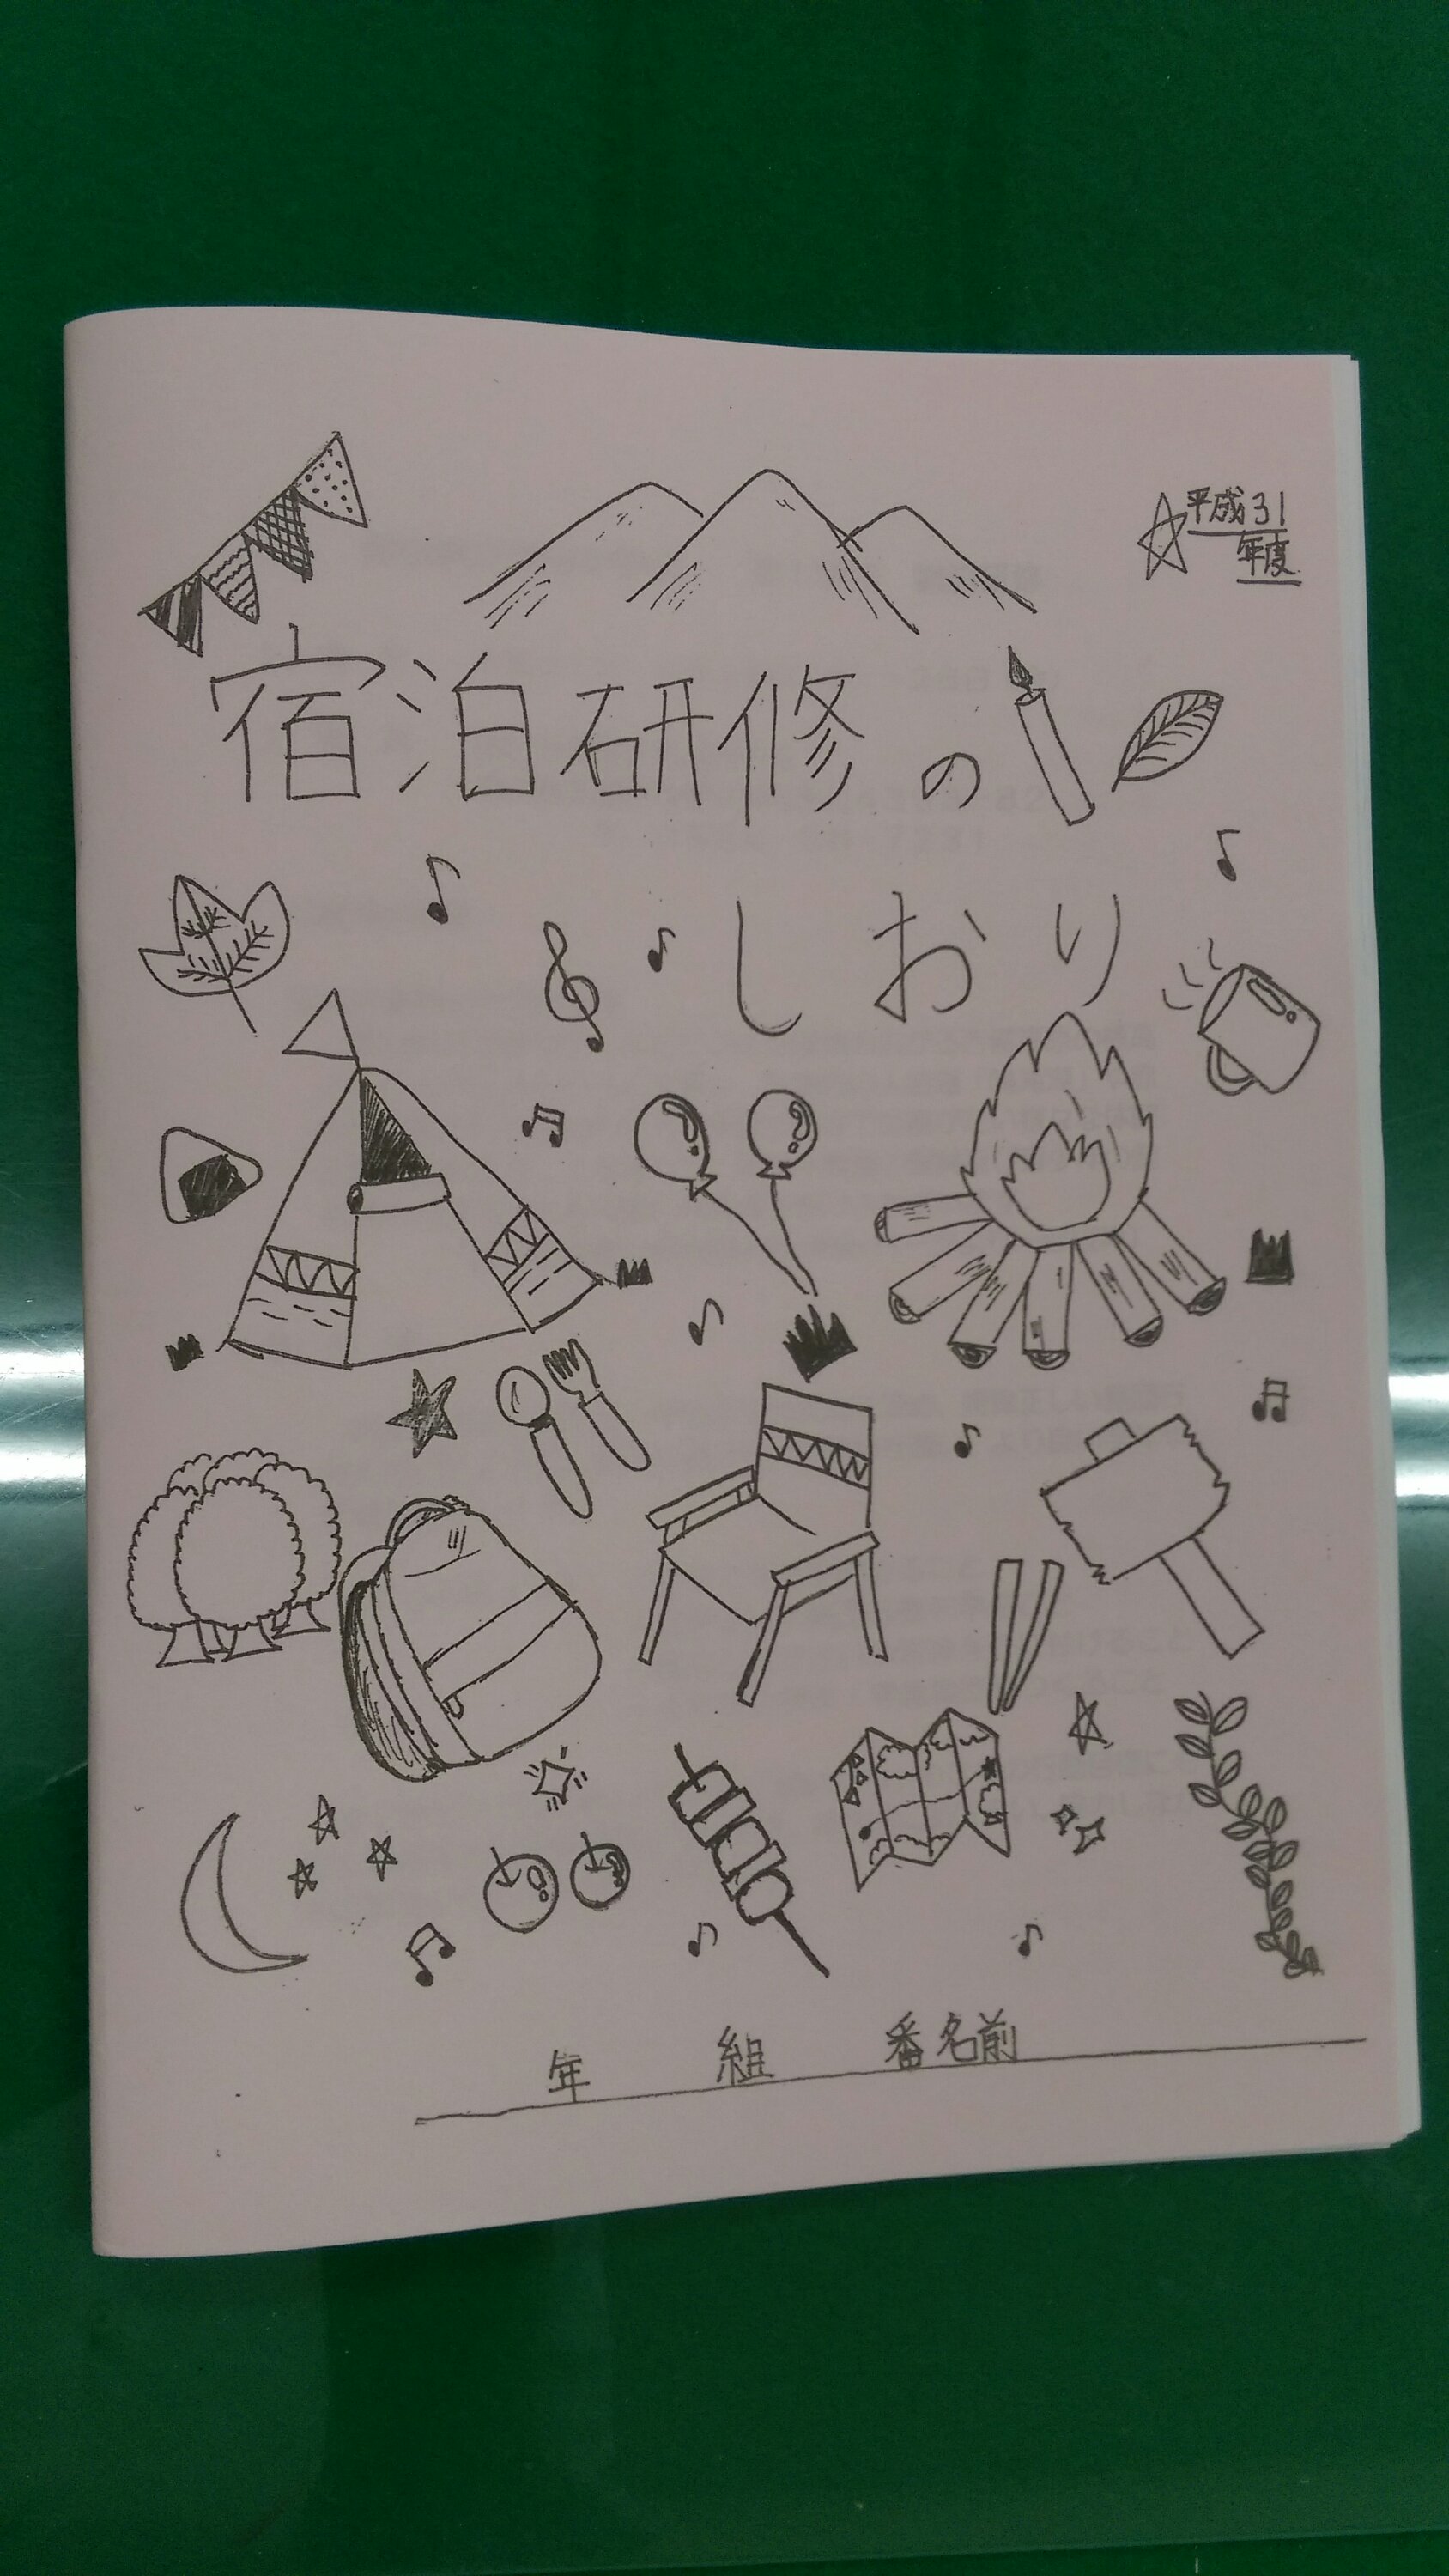 平成31
年度
宿泊研修の
しおり
年 組 番名前